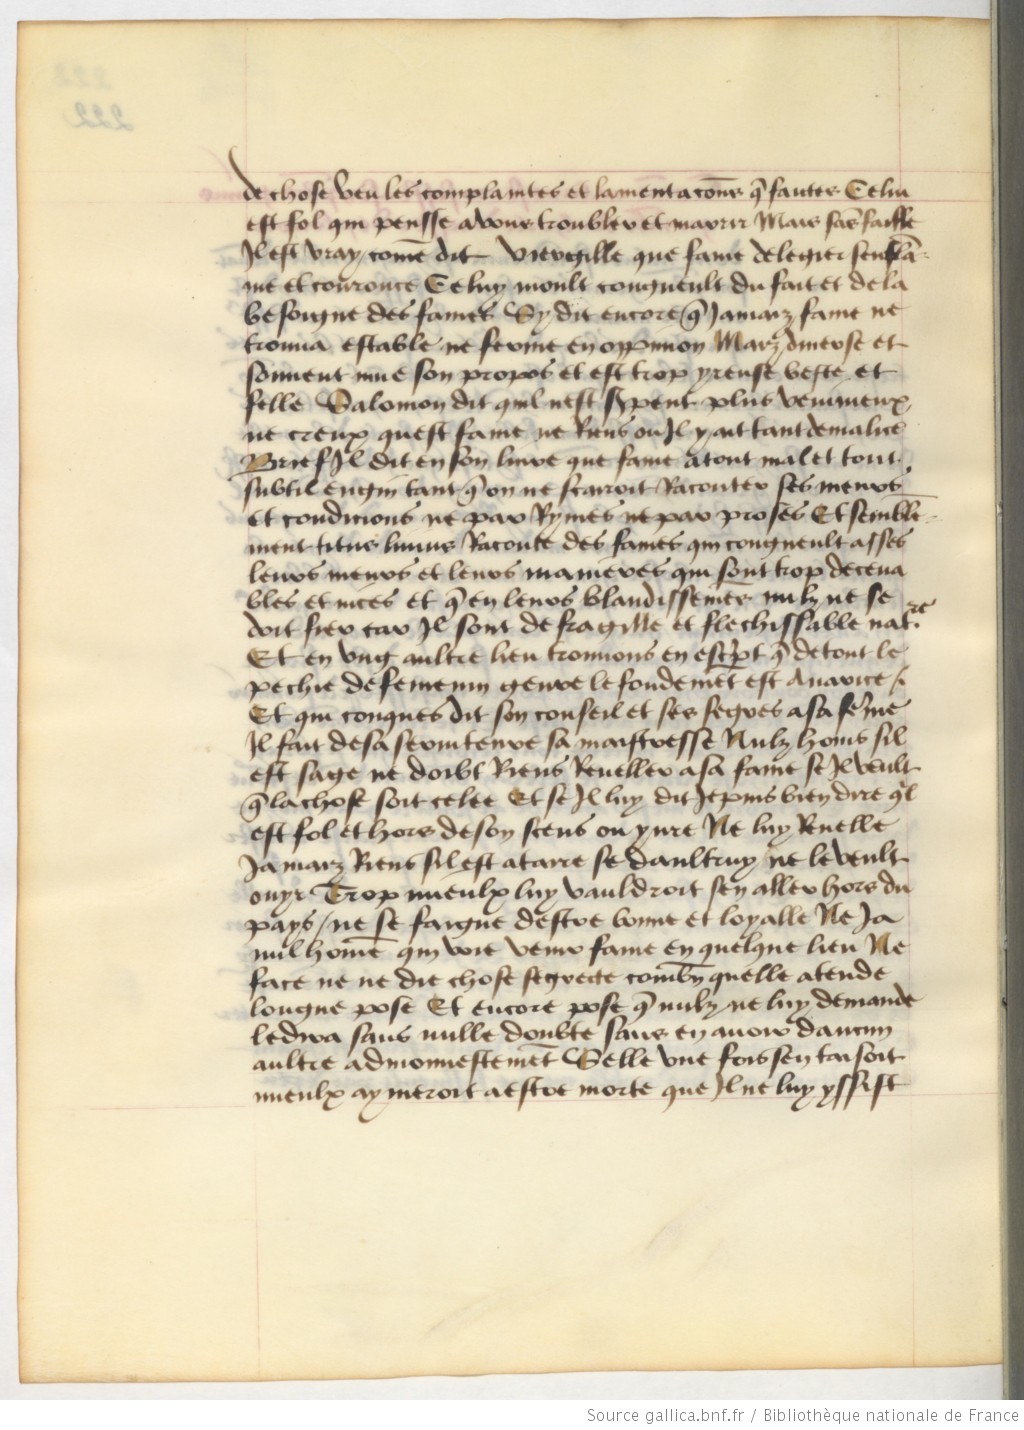 de chose veu les complaintes et lamentacōns q̄ faictes Celui
est fol qui pensse a vous troubler et marrir Mais sās faisse
Il est vray / cōme dit Viergille que fame de legier sensflā-
me et courouce Celuy moult congneult du fait et de la
besoigne des fames Sy dit encore q̄ Jamaiz fame ne
trouua estable ne ferme en oppinion Maiz diuerse et
souuent mue son propos et est trop yreuse beste et
felle Salomon dit quil nest s̄pent plus venimeux
ne creux quest fame ne Riens ou Il y ait tant de malice
Brief Il dit en son liure que fame a tout mal et tout
subtil engin tant q̄ on ne scairoit Raconter ses meurs
et condicions ne par Rymes ne par proses Et semblē-
ment titus liuius Raconte des fames qui congneult asses
leurs meurs et leurs manieres qui sont trop deceua
bles et nices et q̄ en leurs blandissemēs nulz ne se
doit fier car Il sont de fragille et flechissable nat.re
Et en vng aultre lieu trouuons en esc̄pt q̄ de tout le
pechie de femenin genre le fondemēt est Auarice /
Et qui conques dit son conseil et ses segres a sa fēme
Il fait de sa seruitenre sa maistresse Nulz homs sil
est sage ne doibt Riens Reueller a sa fame se Il veult
q̄ la chose soit celee Et se Il luy dit Je puis bien dire q̄l
est fol et hors de son scens ou yure Ne luy Reuelle
Jamaiz Riens sil est a taire se daultruy ne le veult
ouyr Trop mieulx luy vauldroit sen aller hors du
pays / ne se faigne destre bonne et loyalle Ne Ja
nul homē qui voie venir fame en quelque lieu Ne
face ne ne die chose segrecte combn̄ quelle atende
longue pose Et encore pose q̄ nulz ne luy demande
le dira sans nulle doubte sans en auoir daucun
aultre admonnestemēt Selle vne fois sen taisoit
mieulx aymeroit a estre morte que Il ne luy yssist
Source gallica.bnf.fr / Bibliothèque nationale de France